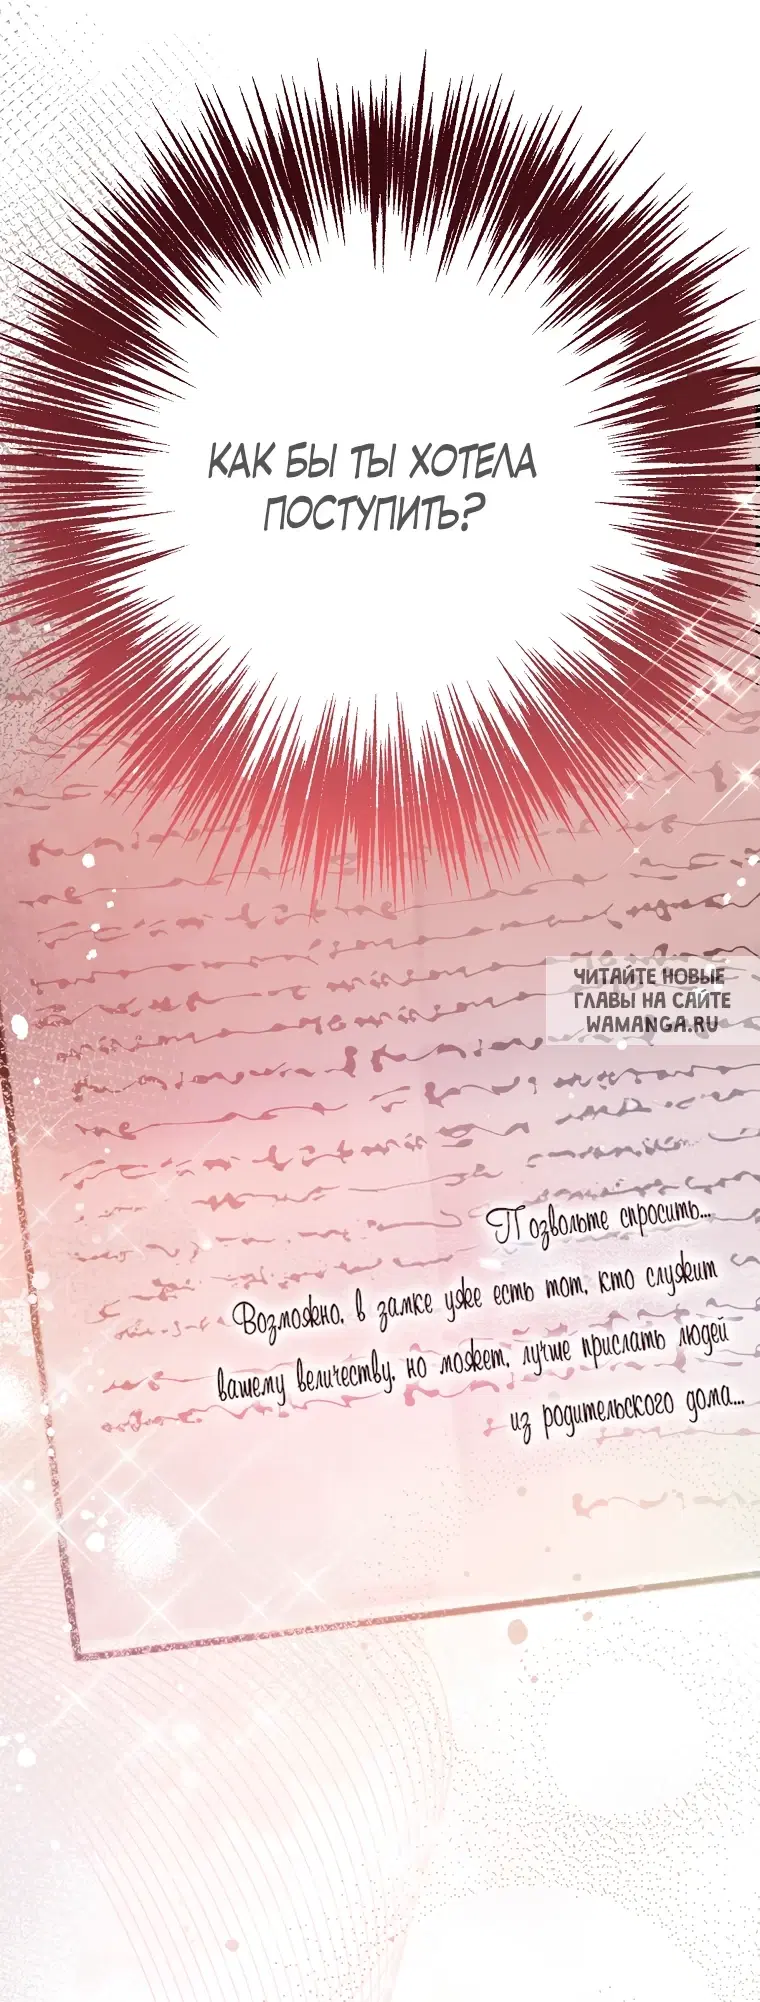 КАК БЫ ТЫ ХОТЕЛА
ПОСТУПИТЬ?
ЧИТАЙТЕ НОВЫЕ
ГЛАВЫ НА САЙТЕ
WAMANGA.RU
Позвольте спросить...
Возможно, в замке уже есть тот, кто служит
вашему величеству, но может, лучше прислать людей
из родительского дома...